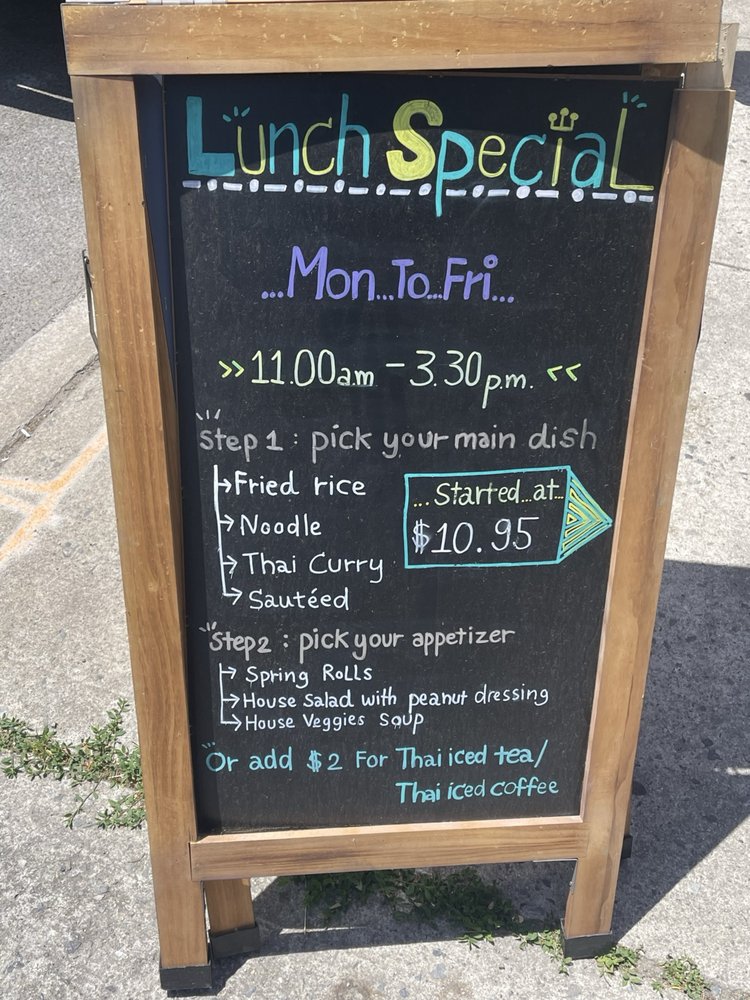 Lunch Special
...Mon...To...Fri...
>> 11.00am - 3.30p.m. <<
Step 1 : pick your main dish
→Fried rice
→Noodle
→Thai Curry
→Sautéed
...Started...at...
$10.95
Step2 : pick your appetizer
→Spring Rolls
→House Salad with peanut dressing
→House Veggies Soup
Or add $2 For Thai iced tea/
Thai iced coffee